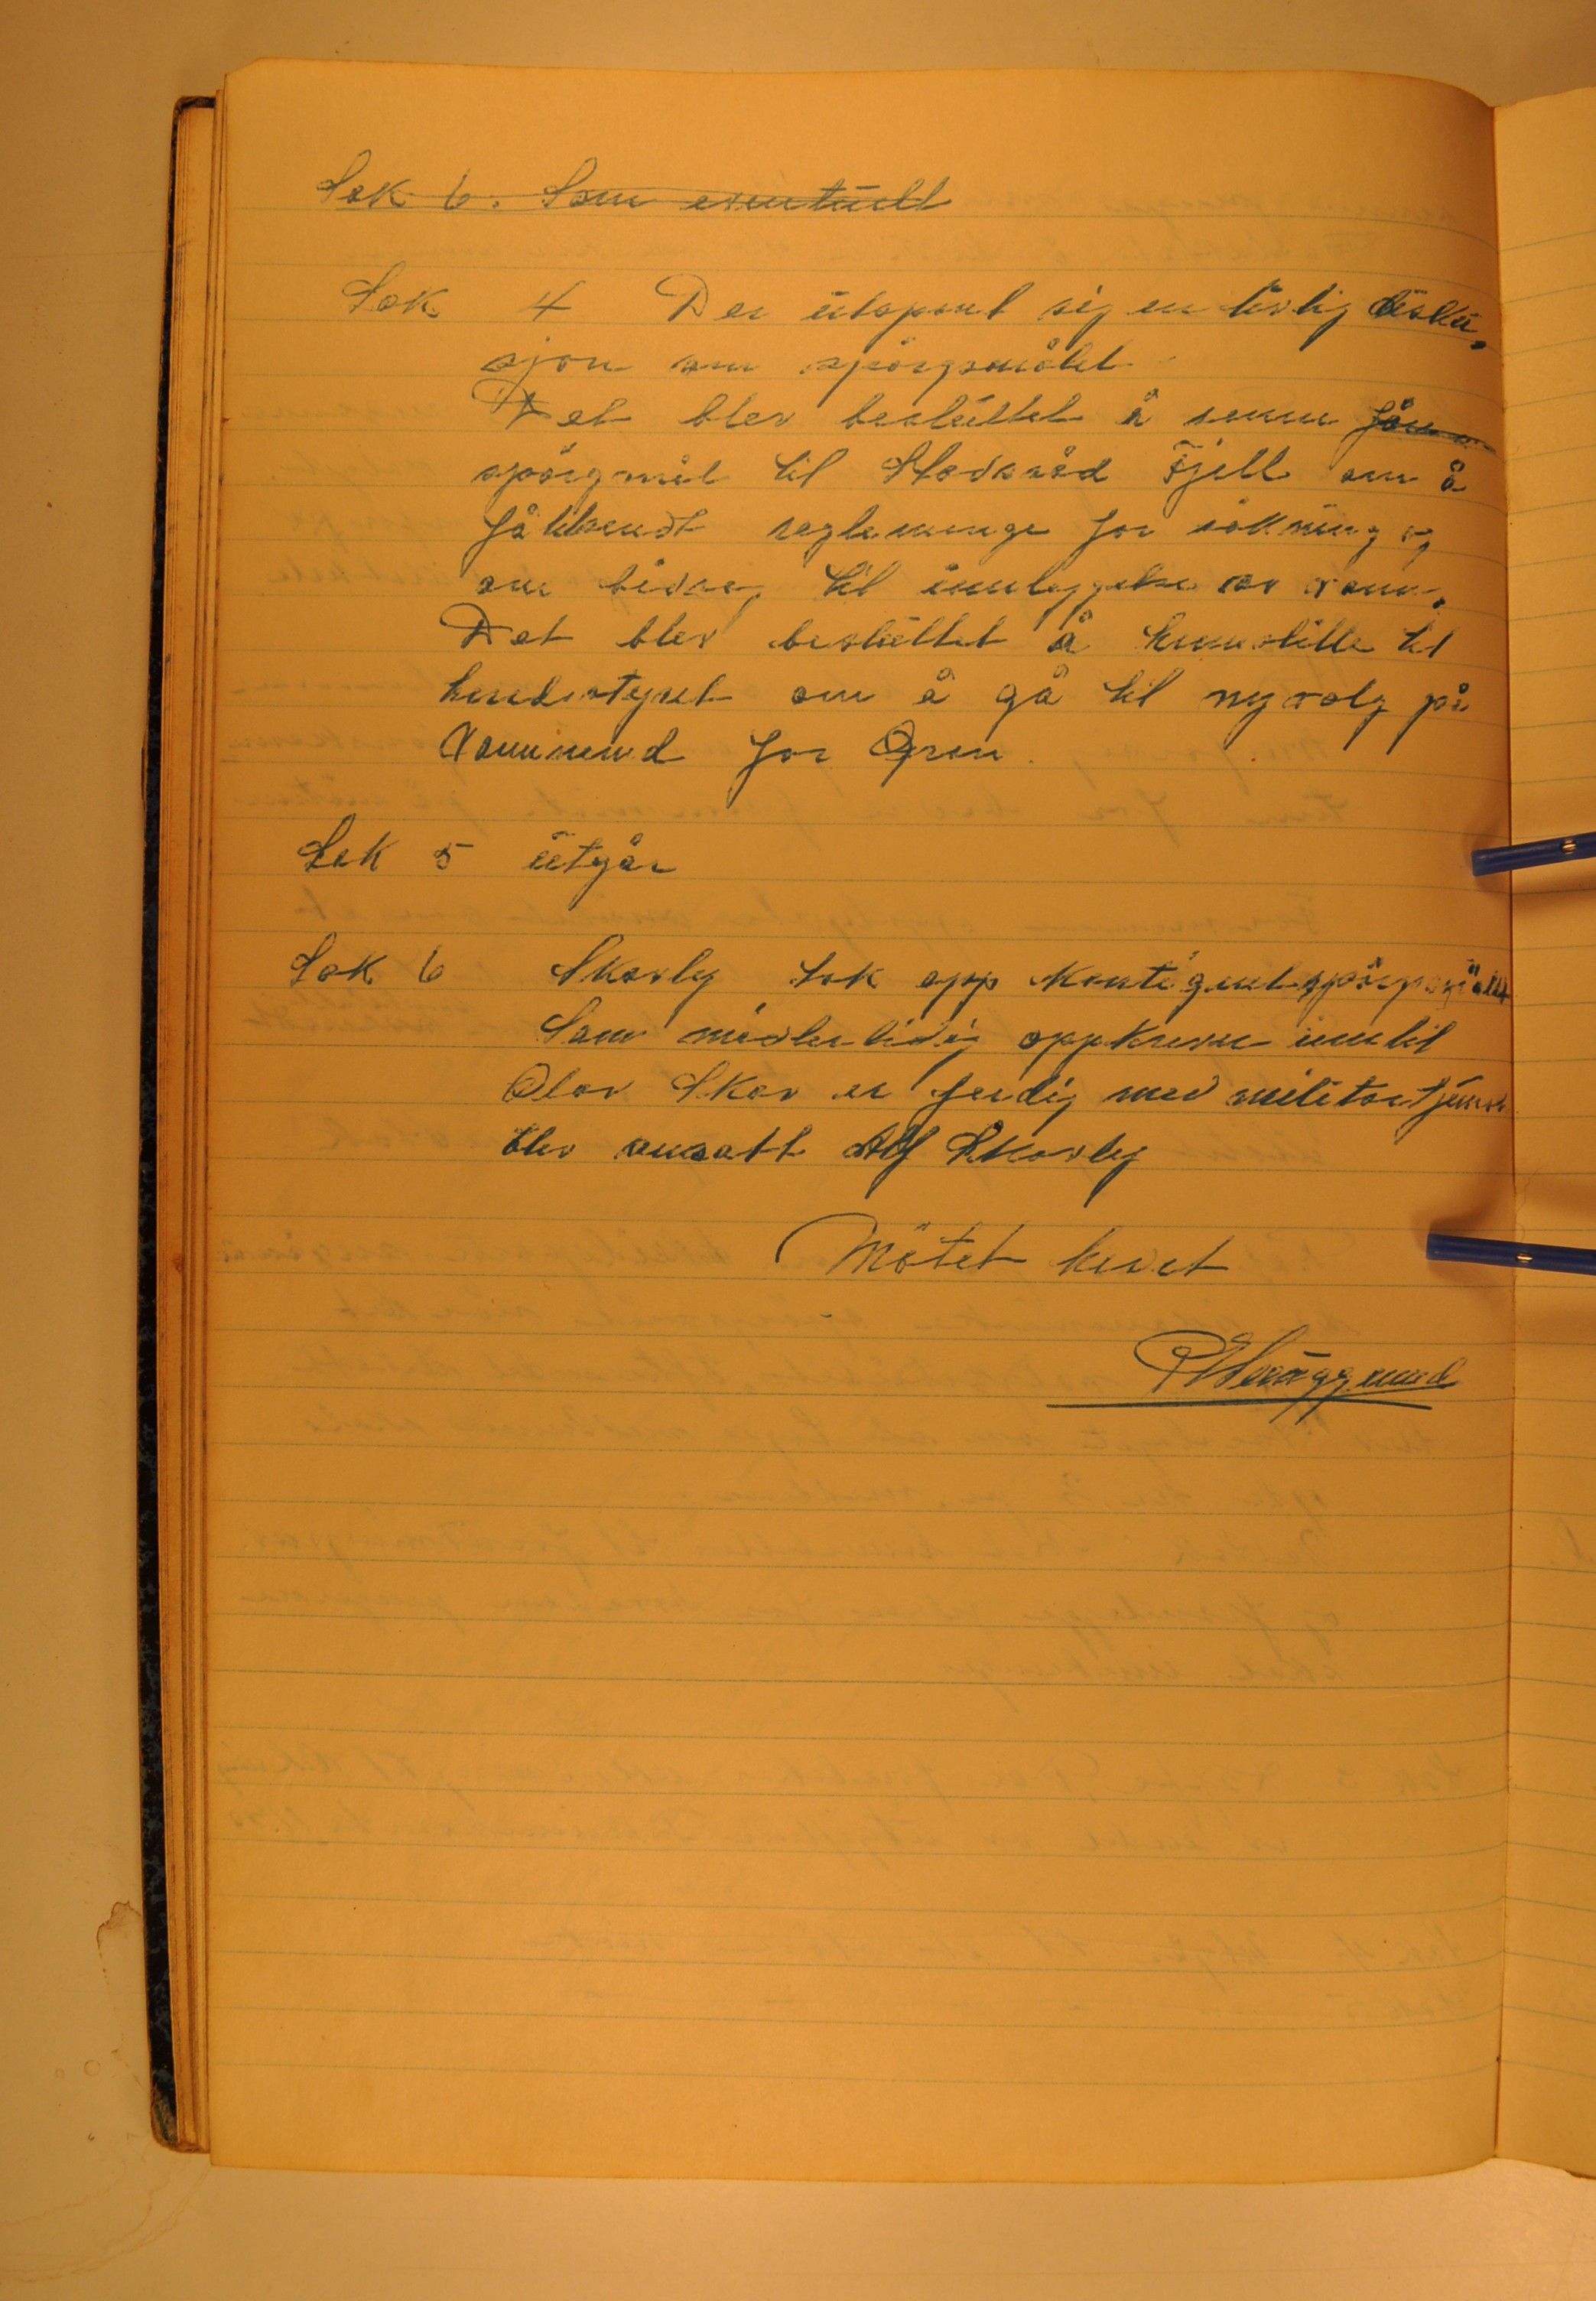 Sak 6. Som eventuelt
Sak 4 Der utspant sig en livlig disku,
sjon om spörgsmålet
Det blev besluttet å senne
spörgmål til Stadsråd Fjell om å
få tilsendt reglemenge for sökning og
om bidrag til innleggelse av vann,
Det blev besluttet å henstille til
herredstyret om å gå til nyvalg på
Vannemnd for Gran.
Sak 5 utgår
Sak 6 Skavly tok opp kontigentspörgsmålet
Som midlertidig oppkrever inntil
Olav Skar er ferdig med militærtjenesten
blev ansatt Alf Skarly
Mötet hevet